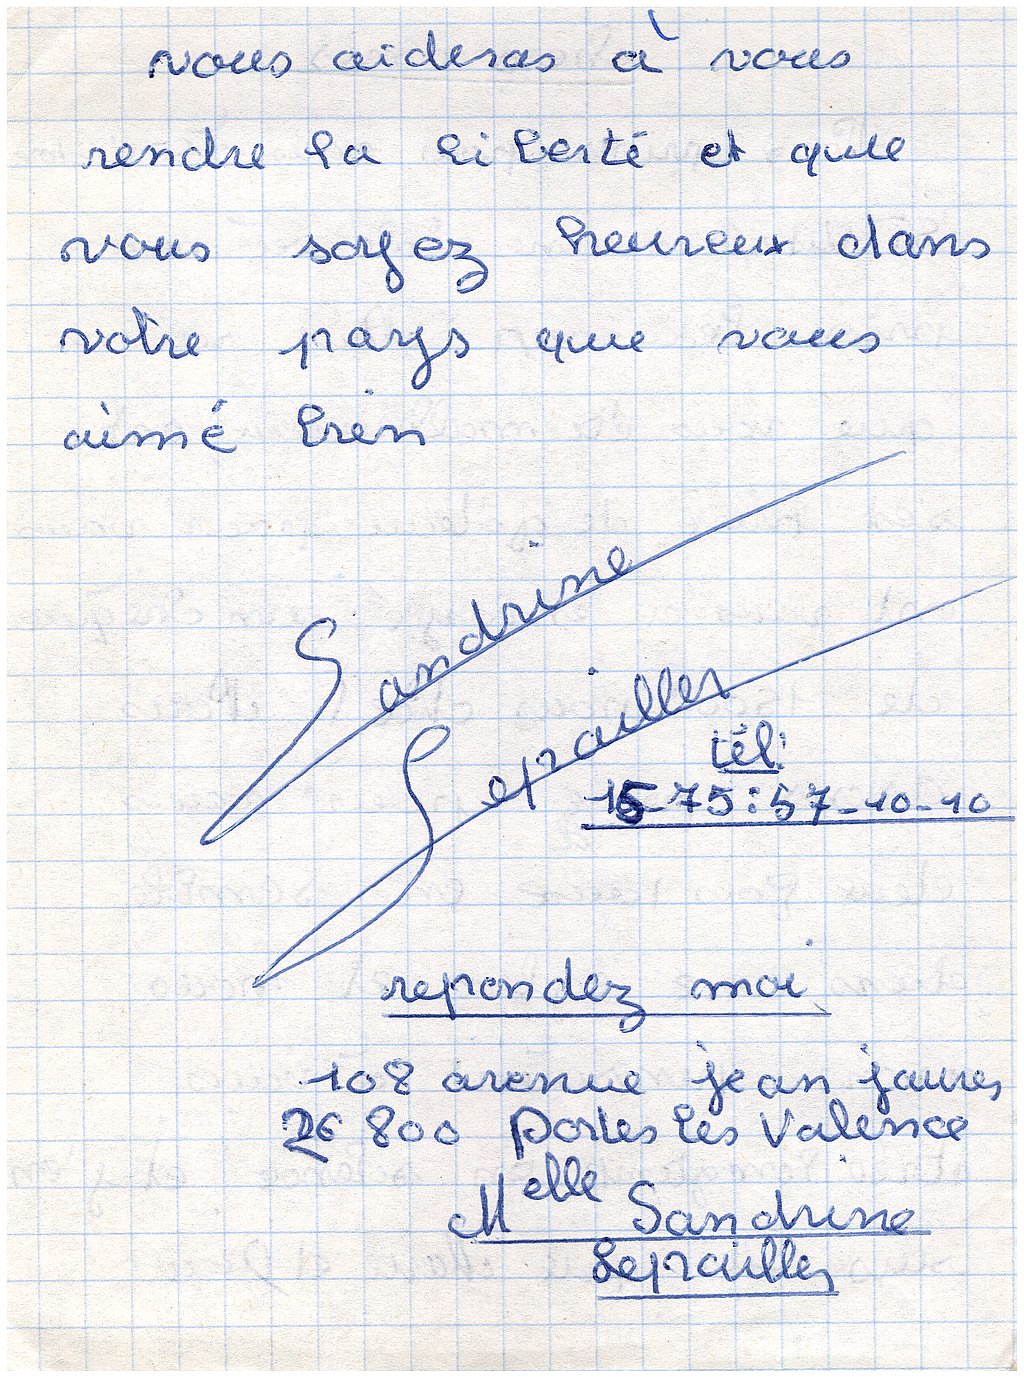 vous aideras à vous
rendre la liberté et que
vous soyez heureux dans
votre pays que vous
aimé bien
Sandrine
Seprailler
tél:
15-75:57-10-10
repondez moi
108 avenue jean jaures
26 800 Portes les Valence
Melle Sandrine
Seprailler